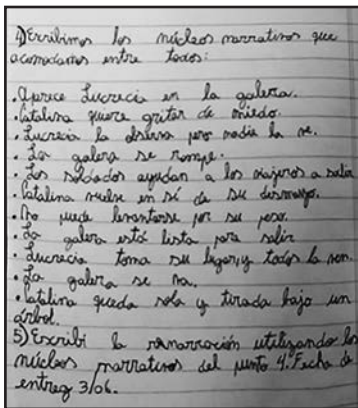 4) Escribimos los núcleos narrativos que
acomodamos entre todos:
• Aprece Lucrecia en la galera.
• Catalina quere gritar de miedo.
• Lucrecia la observa pero nadie la ve.
• La galera se rompe.
• Los soldados ayudan a los viajeros a salir
• Catalina vuelve en sí de su desmayo.
• No puede levantarse por su peso.
• La galera está lista para salir
• Lucrecia toma su lugar, y todos la ven.
• La galera se va.
• Catalina queda sola y tirada bajo un
árbol.
5) Escribí la renarración utilizando los
núcleos narrativos del punto 4. Fecha de
entreg 3/06.